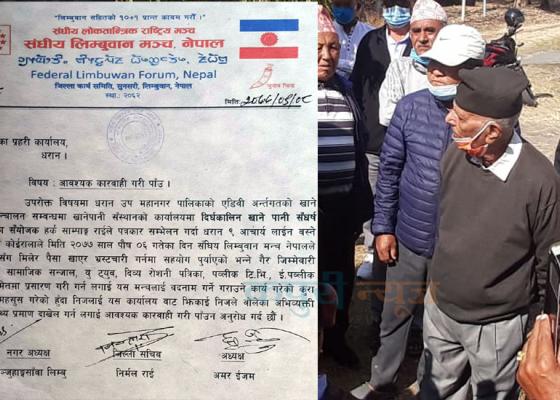 "लिम्बुवान सहितको १०+१ प्रान्त कायम गरौं ।"
संघीय लोकतान्त्रिक राष्ट्रिय मञ्च
संघीय लिम्बुवान मञ्च, नेपाल
Federal Limbuwan Forum, Nepal
जिल्ला कार्य समिति, सुनसरी, लिम्बुवान, नेपाल
स्था.: २०६२
चुनाव चिन्ह
मिति:
का प्रहरी कार्यालय,
धरान ।
विषय : आवश्यक कारवाही गरी पाउँ ।
उपरोक्त विषयमा धरान उप महानगर पालिकाको एडिवी अर्न्तगतको खाने
न्चालन सम्वन्धमा खानेपानी संस्थानको कार्यालयमा दिर्घकालिन खाने पानी संघर्ष
का संयोजक हर्क साम्पाङ्ग राईले पत्रकार सम्मेलन गर्दा धरान ९ आचार्य लाईन वस्ने
कोईरालाले मिति २०७७ साल पौष ०६ गतेका दिन संघिय लिम्बुवान मन्च नेपालले
संग मिलेर पैसा खाएर भ्रस्टचारी गर्नमा सहयोग पुर्याएको भन्ने गैर जिम्मेवारी
सामाजिक सन्जाल, यु ट्युब, दिव्य रोशनी पत्रिका, पव्लीक टि.भि. ई.पव्लीक
मित्तमा प्रसारण गरी गर्न लगाई यस मन्चलाई वदनाम गर्ने गराउने कार्य गरेको कुरा
महसुस गरेको हुँदा निजलाई यस कार्यालय वाट भिकाई निजले वोलेका अभिव्यक्ती
थ्य प्रमाण दाखेल गर्न लगाई आवश्यक कारवाही गरी पाउँन अनुरोध गर्द छौं ।
नगर अध्यक्ष जिल्ला सचिव अध्यक्ष
ञ्जुहाङसाँवा लिम्बु निर्मल राई अमर ईजम